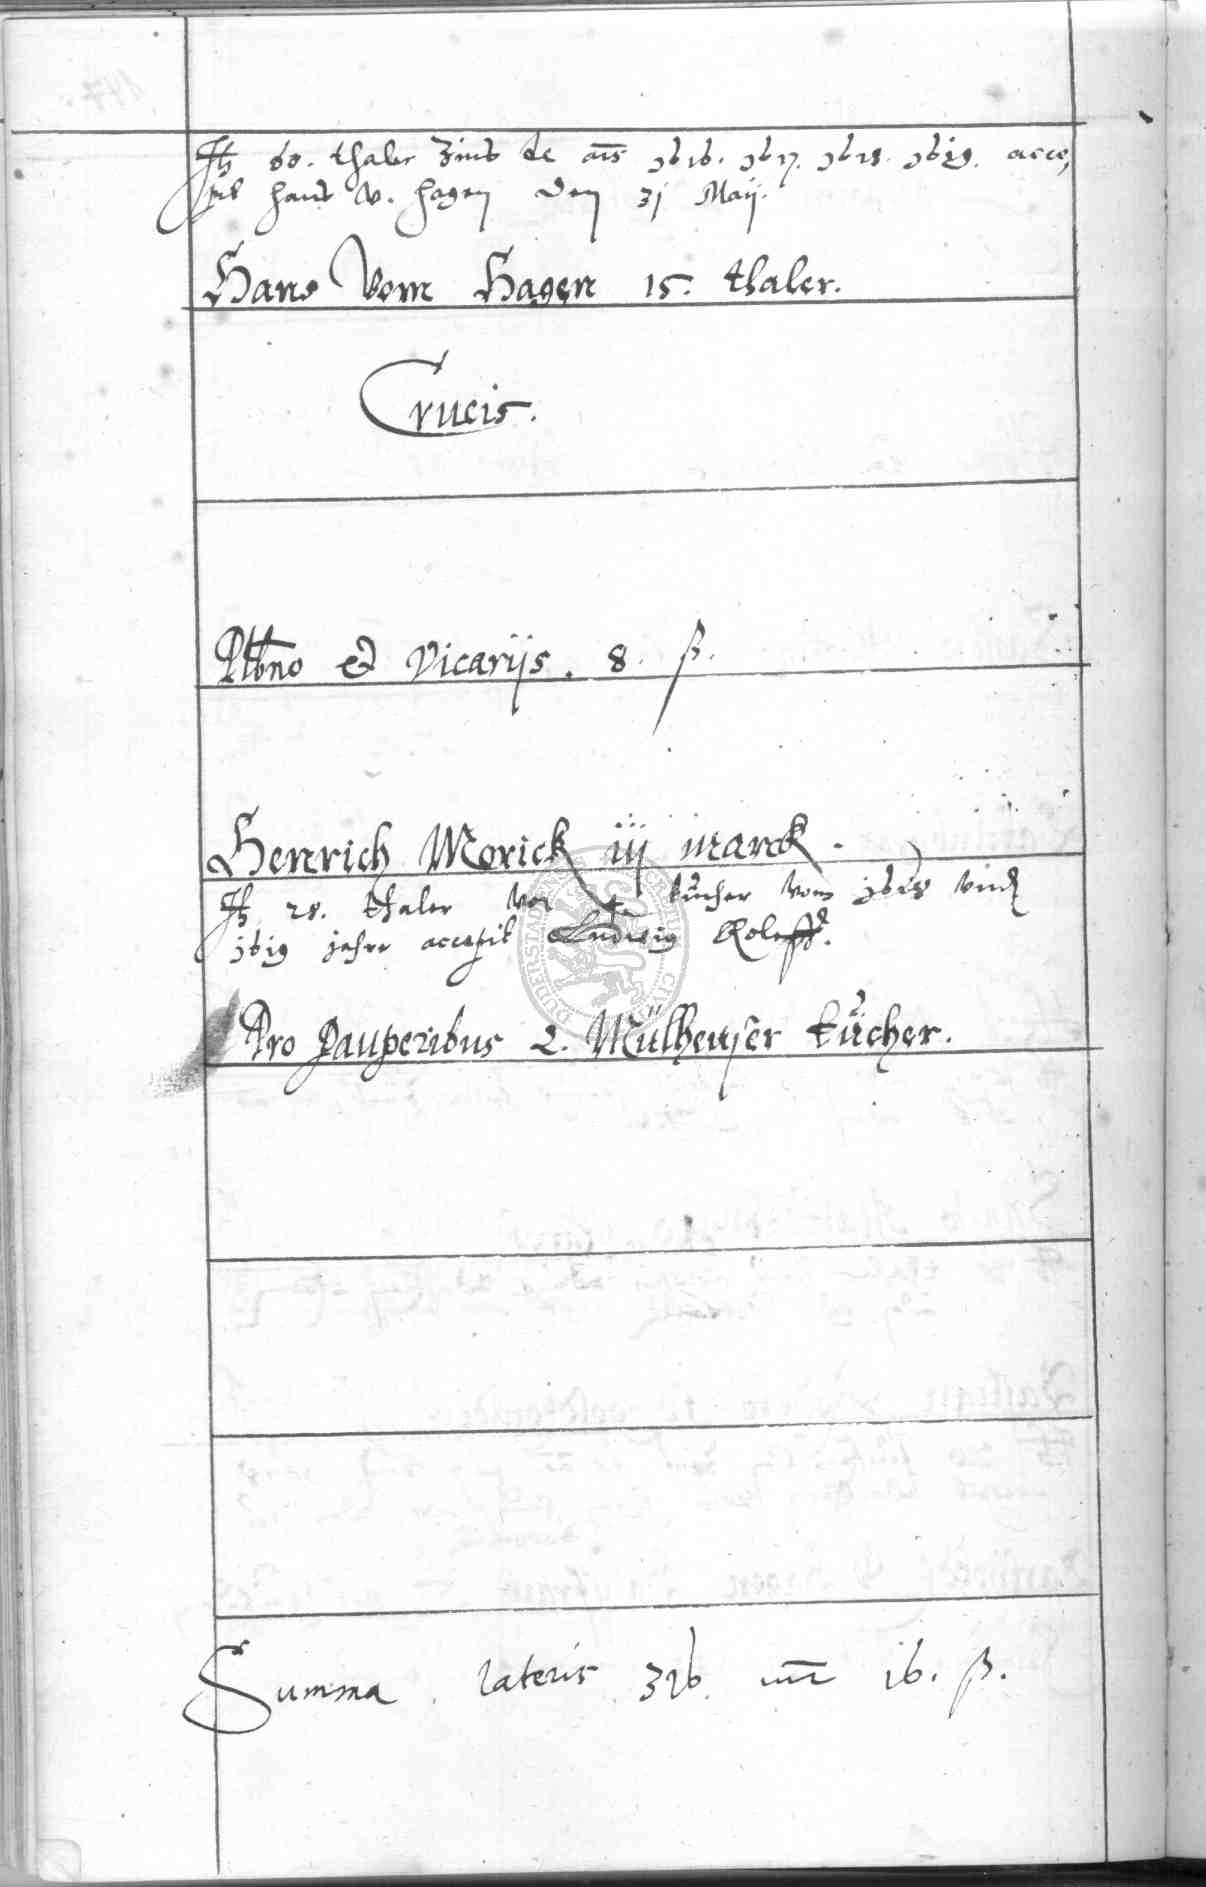 It 60. thaler Zins de anis 1616. 1617. 1618. 1619. acce,
pit Hans v. Hagen den 31 Maij.
Hans vom Hagen 15. thaler.
Crucis.
Plbno et Vicarijs. 8. ß.
Henrich Morick iij marck.
It 28. thaler vor 4 tücher vom 1618 vnd
1619 jahre accepit Ludwig
Pro pauperibus 2. Mülheuser tücher.
Summa lateris 316 mr 16. ß.
DUDERSTAD